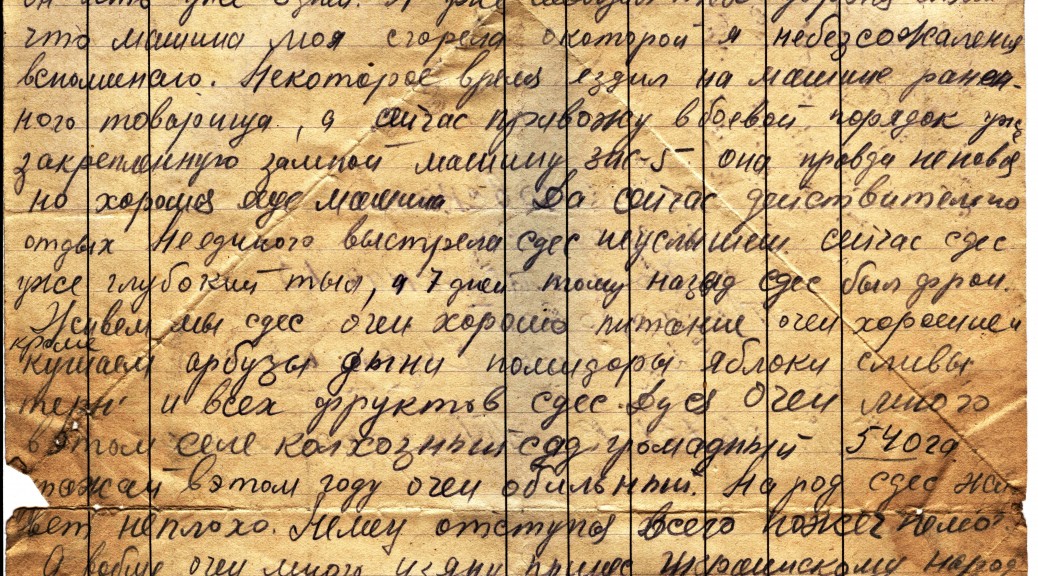 что машина моя сгорела окоторой я небезсожаления
вспоминаю. Некоторое время ездил на машине ранен-
ного товарища, а сичас привожу вбоевой порядок уже
закрепленную замной машину Зис-5 она правда неновая
но хорошая еще машина Да сейчас действително
отдых Неединого выстрела сдес неуслышеш сейчас сдес
уже глубокий тыл, а 7 дней тому назад сдес был фрон.
Живем мы сдес очен хорошо питание очен хорошее и
кроме
кушаем арбузы дыни помидоры яблоки сливы
терн и всех фруктов сдес Дуся Очен много
вэтом селе колхозный сад громадный 540га
урожай вэтом году очен обильный. Народ сдес жи-
вет неплохо. Немец отступая всего пожеч
А вобще очен много принес Украинскому народ